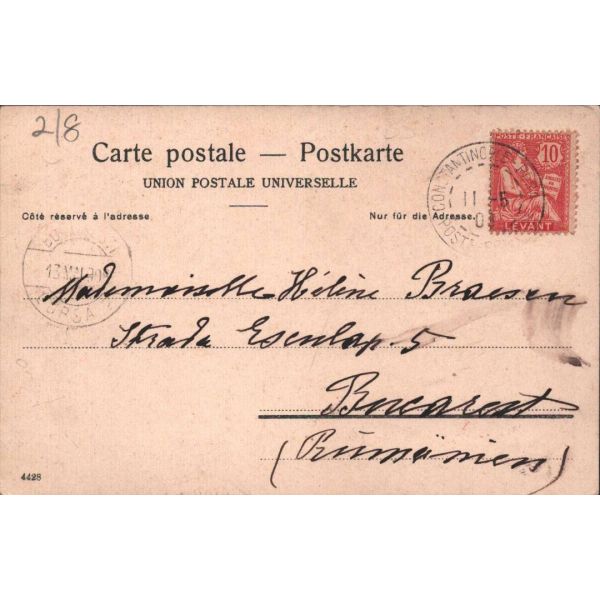 2/8
Carte postale — Postkarte
UNION POSTALE UNIVERSELLE
Côté réservé à l'adresse.
Nur für die Adresse.
POSTE FRANÇAISE
10
LEVANT
CONSTANTINOPLE
11 -5
POSTE
13
CURSA
Mademoiselle Hélène Braesen
Strada Esculap. 5
Bucarest
(Rumänien)
4428